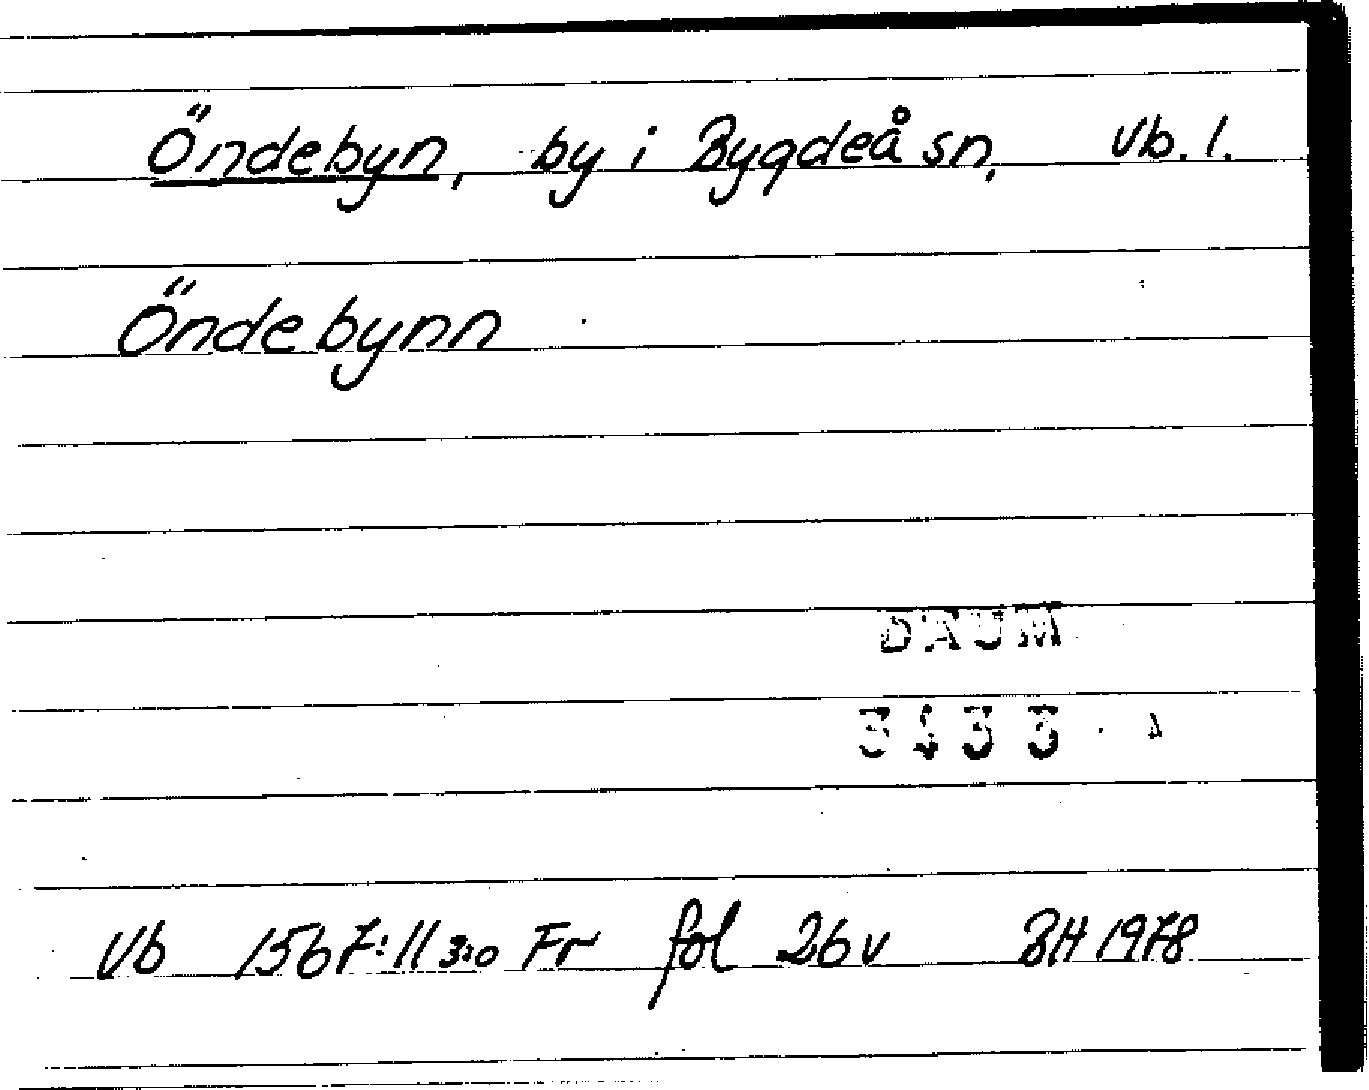 Öndebyn, by i Bygdeå sn, Vb. l.
Öndebynn
DAUM
3433
Vb 1567:11 3:0 Fr fol 26v BH 1978